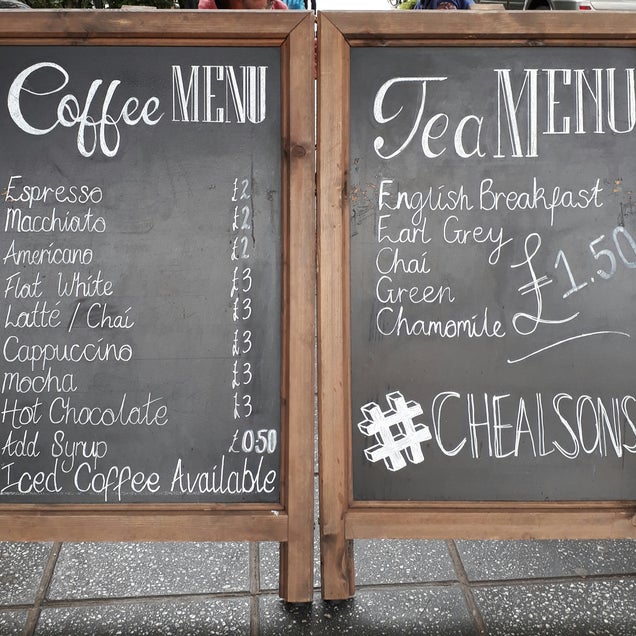 Coffee MENU
Espresso £2
Macchiato £2
Americano £2
Flat White £3
Latte / Chai £3
Cappuccino £3
Mocha £3
Hot Chocolate £3
Add Syrup £0.50
Iced Coffee Available
Tea MENU
English Breakfast
Earl Grey
Chai
Green
Chamomile
£1.50
#CHEALSONS